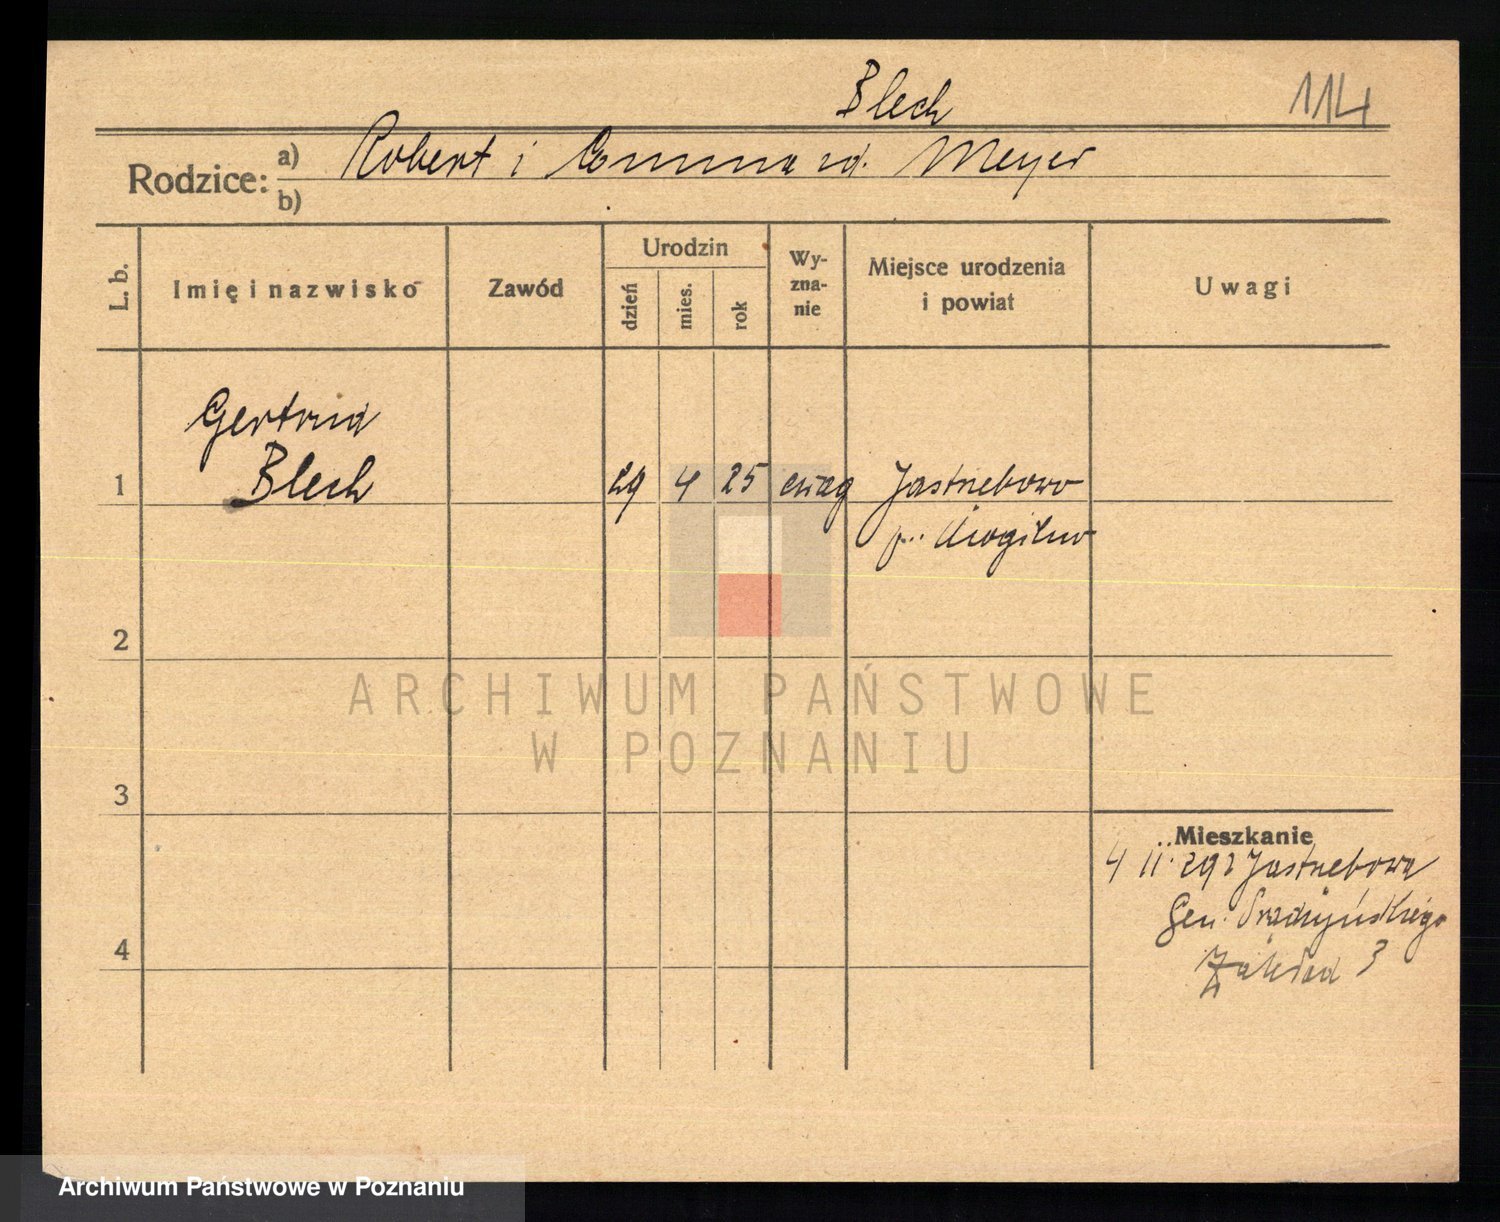 Blech
114
Rodzice:
a) Robert i Emma zd. Meyer
b)
L. b.
Imię i nazwisko
Zawód
Urodzin
dzień
mies.
rok
Wy-
zna-
nie
Miejsce urodzenia
i powiat
Uwagi
Gertrud
1 Blech 29 4 25 ewag Jastrzebowo
p. Mogilno
2
ARCHIWUM PAŃSTWOWE
W POZNANIU
3
Mieszkanie
4 II. 292 Jastrzebowa
Gen. Prądzyńskiego
4
3
Archiwum Państwowe w Poznaniu